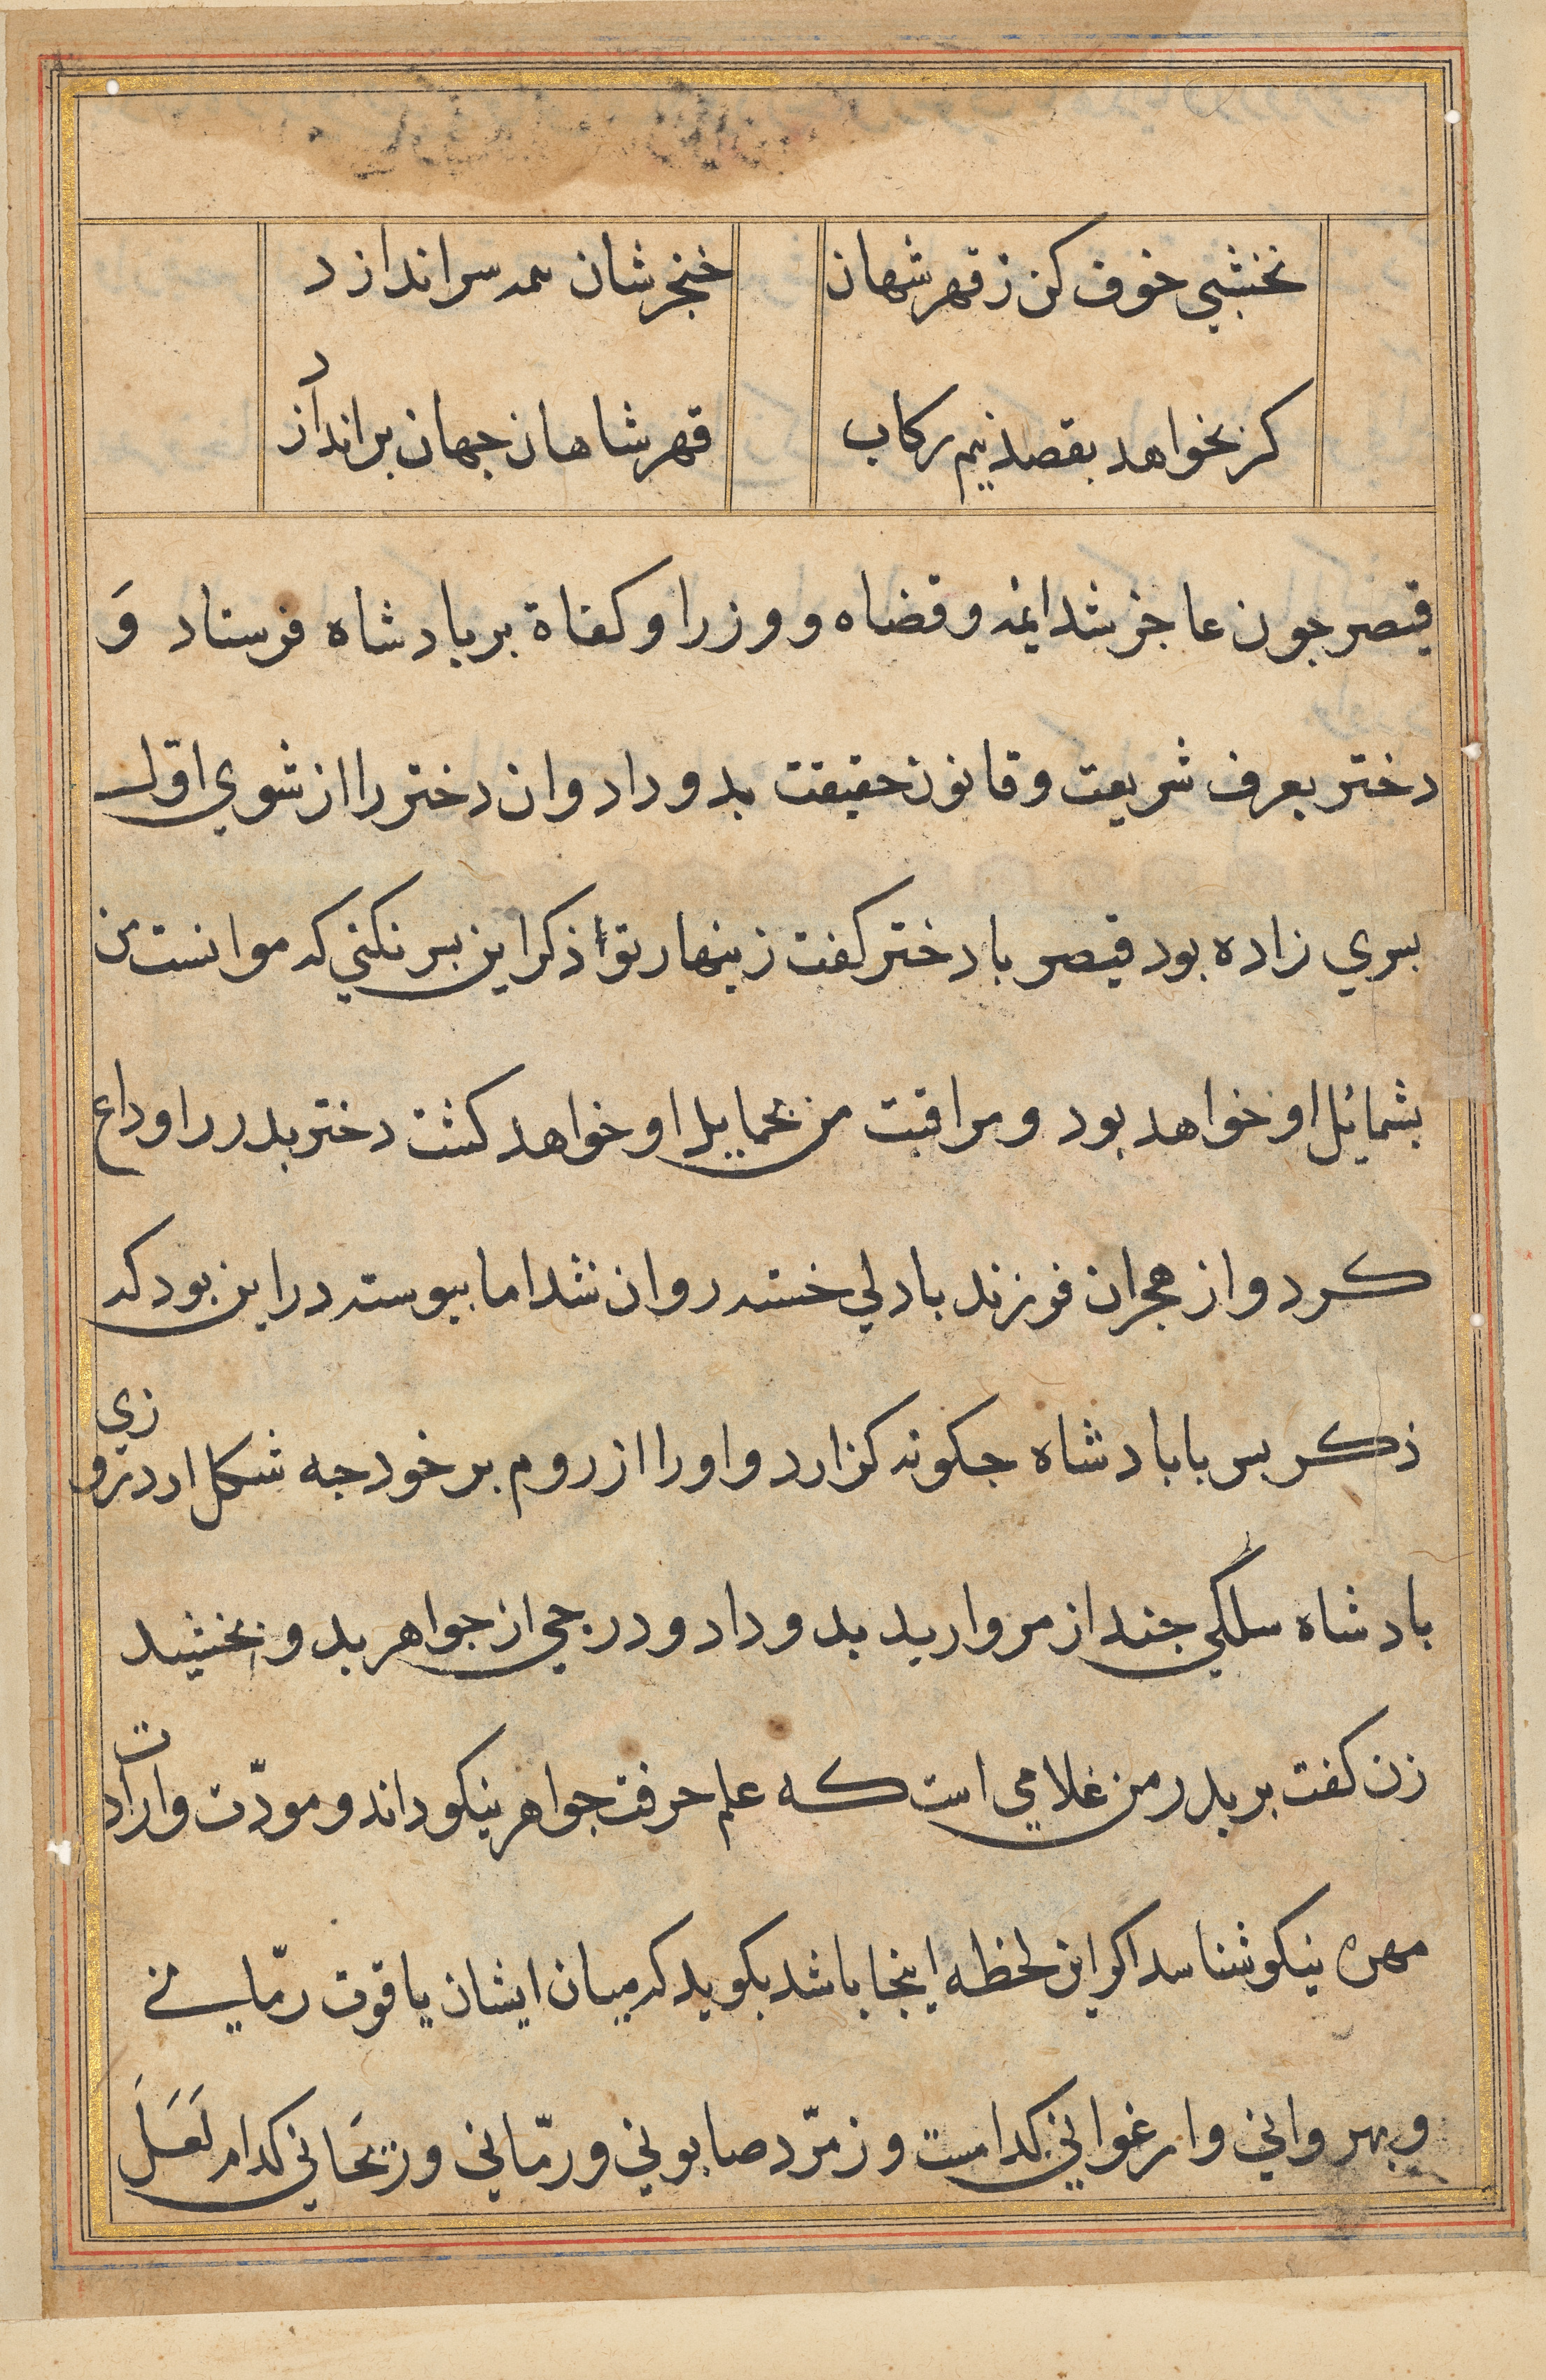 نخشبي خوف كن ز قهر شهان خنجرشان همه سر اندازد
كر بخواهد بقصد نيم ركاب قهر شاهان جهان براندازد
قيصر جون عاجز شد ايمه و قضاه و وزرا و كفاة بر بادشاه فرستاد وَ
دختر بعرف شريعت و قانون حقيقت بدو داد و ان دختر را از شوي اوّل
بسري زاده بود قيصر با دختر كفت زينهار تو ذكر اين بسر نكني كه موانست من
بشمائل او خواهد بود و مراقبت من بخمايل او خواهد كشت دختر بدر را وداع
كرد و از هجران فرزند با دلي خسته روان شد اما بيوسته در اين بود كه
ذكر بسر با بادشاه جكونه كزارد و او را از روم بر خود جه شكل ارد روزي
بادشاه سلكي جند از مرواريد بدو داد و درجي از جواهر بدو بخشيد
زن كفت بر بدر من غلامي است كه علم حرفت جواهر نيكو داند و مودّت وارادات
مهره نيكو شناسد اكر اين لحظه اينجا باشد بكويد كه ميان ايشان ياقوت رمّاني
و بهرواني و ارغواني كدامست و زمرّد صابوني و رمّاني و ريحاني كدام لَعَلَ